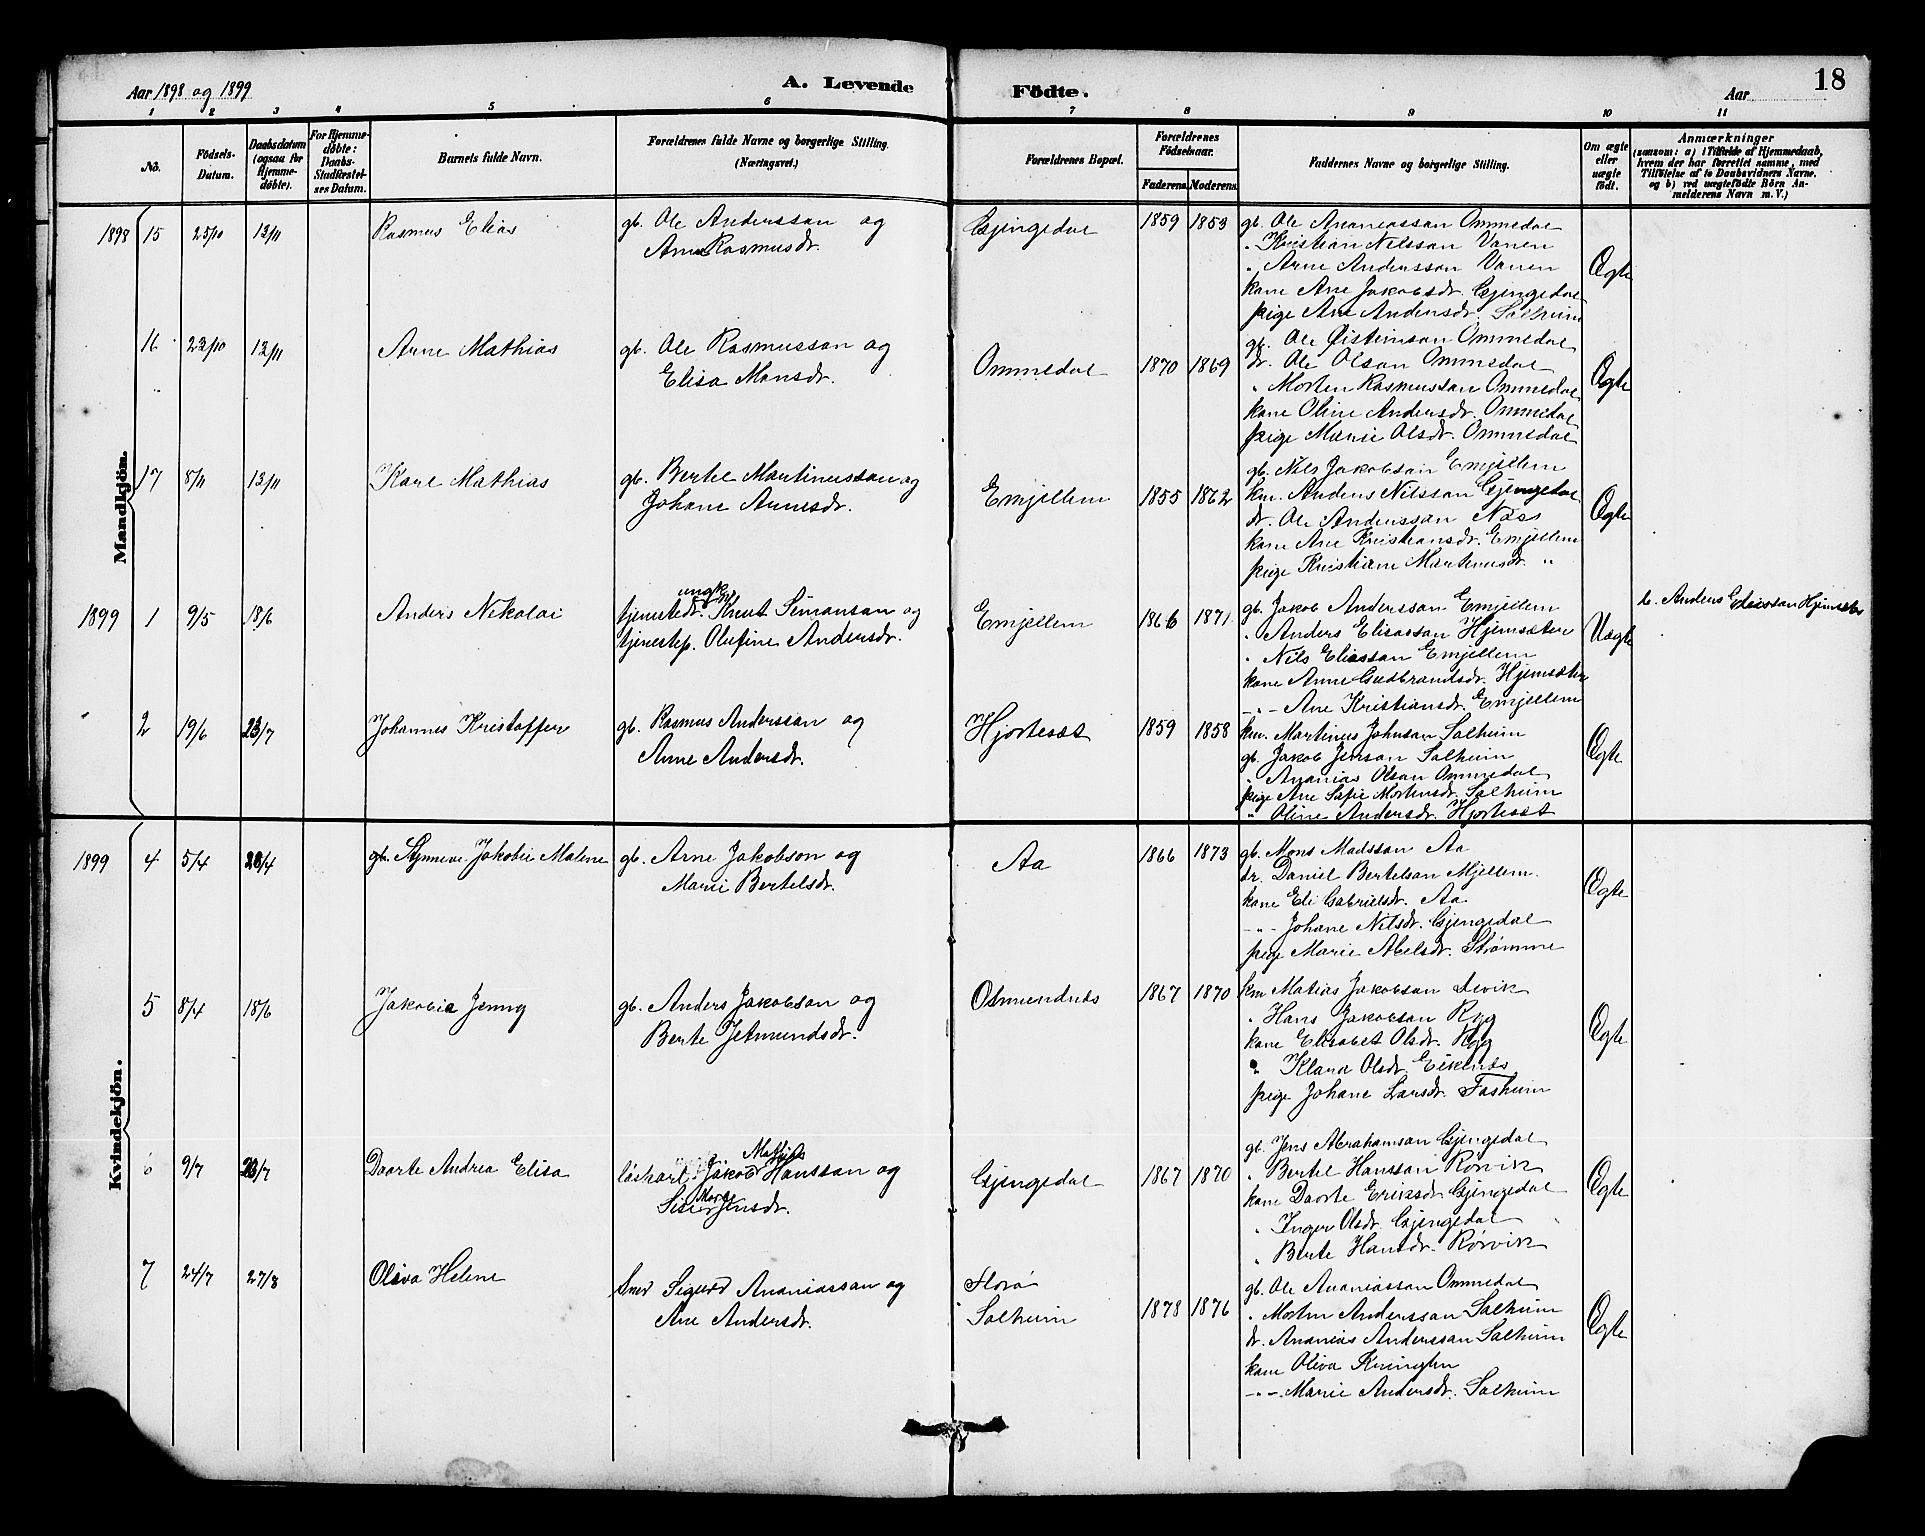 Aar 1898 og 1899
A. Levende
Födte.
Aar
18
1 2 3 4 5 6 7 8 9 10 11
No.
Födsels-Datum.
Daabsdatum (ogsaa for Hjemme-döbte).
For Hjemme-döbte: Daabs-Stadfæstel-ses Datum.
Barnets fulde Navn.
Forældrenes fulde Navne og borgerlige Stilling. (Næringsvei.)
Forældrenes Bopæl.
Forældrenes Födselsaar.
Faderens. Moderens.
Faddernes Navne og borgerlige Stilling.
Om ægte eller uægte födt.
Anmærkninger
(saasom: a) i Tilfælde af Hjemmedaab, hvem der har forrettet samme, med Tilföielse af to Daabsvidners Navne, og b) ved uægtefödte Börn An-melderens Navn m. V.)
Mandkjön.
1898 15 25/10 13/11 Rasmus Elias
gb. Ole Anderssan og
Ane Rasmusdr.
Gjengedal 1859 1853
gb. Ole Ananiassan Ommedal
" Kristian Nilssan Vanen
" Arne Anderssan Vanen
kone Ane Jakobsdr. Gjengedal
pige Ane Andersdr. Solheim
Ægte
16 23/10 13/11 Arne Mathias
gb. Ole Rasmussan og
Elisa Monsdr.
Ommedal 1870 1869
gb. Ole Øisteinsan Ommedal
dr. Ole Olsan Ommedal
" Morten Rasmussan Ommedal
kone Oline Andersdr. Ommedal
pige Marie Olsdr. Ommedal
Ægte
17 8/11 13/11 Karl Mathias
gb. Bertel Martinussan og
Johane Arnesdr.
Emjellem 1855 1862
gb. Nils Jakobsan Emjellem
km. Anders Nilssan Gjengedal
dr. Ole Anderssan Næss
kone Ane Kristiansdr. Emjellem
pige Kristiane Martinusdr. "
Ægte
1899 1 9/5 18/6 Anders Nikolai
ungk.
tjenestedr. Knut Simonsan og
tjenestep. Olufine Andersdr.
Emjellem 1866 1871
gb. Jakob Anderssan Emjellem
" Anders Eliassan Hjemsæter
" Nils Eliassan Emjellem
kone Anne Gudbrandsdr. Hjemsæter
-"- Ane Kristiansdr. Emjellem
Uægte
Anders Eliassan Hjemsæter
2 19/6 23/7 Johannes Kristoffer
gb. Rasmus Anderssan og
Anne Andersdr.
Hjortesæt 1859 1858
km. Martinus Johnsan Solheim
gb. Jakob Jensan Solheim
" Ananias Olsan Ommedal
pige Ane Sofie Mortensdr. Solheim
" Oline Andersdr. Hjortesæt
Ægte
Kvindekjön.
1899 4 5/4 23/4 gb. Synneve Jakobie Malene
gb. Arne Jakobson og
Marie Bertelsdr.
Aa 1866 1873
gb. Mons Madssan Aa
dr. Daniel Bertelsan Mjellem.
kone Eli Gabrielsdr. Aa
-"- Johane Nilsdr. Gjengedal
pige Marie Abelsdr. Strømme
Ægte
5 8/4 18/6 Jakobie Jenny
gb. Anders Jakobsan og
Berte Jetmundsdr.
Osmundnes 1867 1870
km Matias Jakobsan Devik
" Hans Jakobsan Rygg
kone Elisabet Olsdr. Rygg
" Klara Olsdr. Eikenes
pige Johane Larsdr. Fosheim
Ægte
6 9/7 23/7 Daarte Andrea Elisa
Mathias
löskarl Jakob Hanssan og
Marie
Sisie Jensdr.
Gjengedal 1867 1870
gb. Jens Abrahamsan Gjengedal
" Bertel Hanssan Rørvik
kone Daarte Eriksdr. Gjengedal
" Inger Olsdr. Gjengedal
" Berte Hansdr. Rørvik
Ægte
7 24/7 27/8 Oliva Helene
Smed Sigurd Ananiassan og
Ane Andersdr.
Florø
Solheim 1878 1876
gb. Ole Ananiassan Ommedal
" Morten Anderssan Solheim
dr. Ananias Anderssan Solheim
kone Oliva
-"- Marie Andersdr. Solheim
Ægte